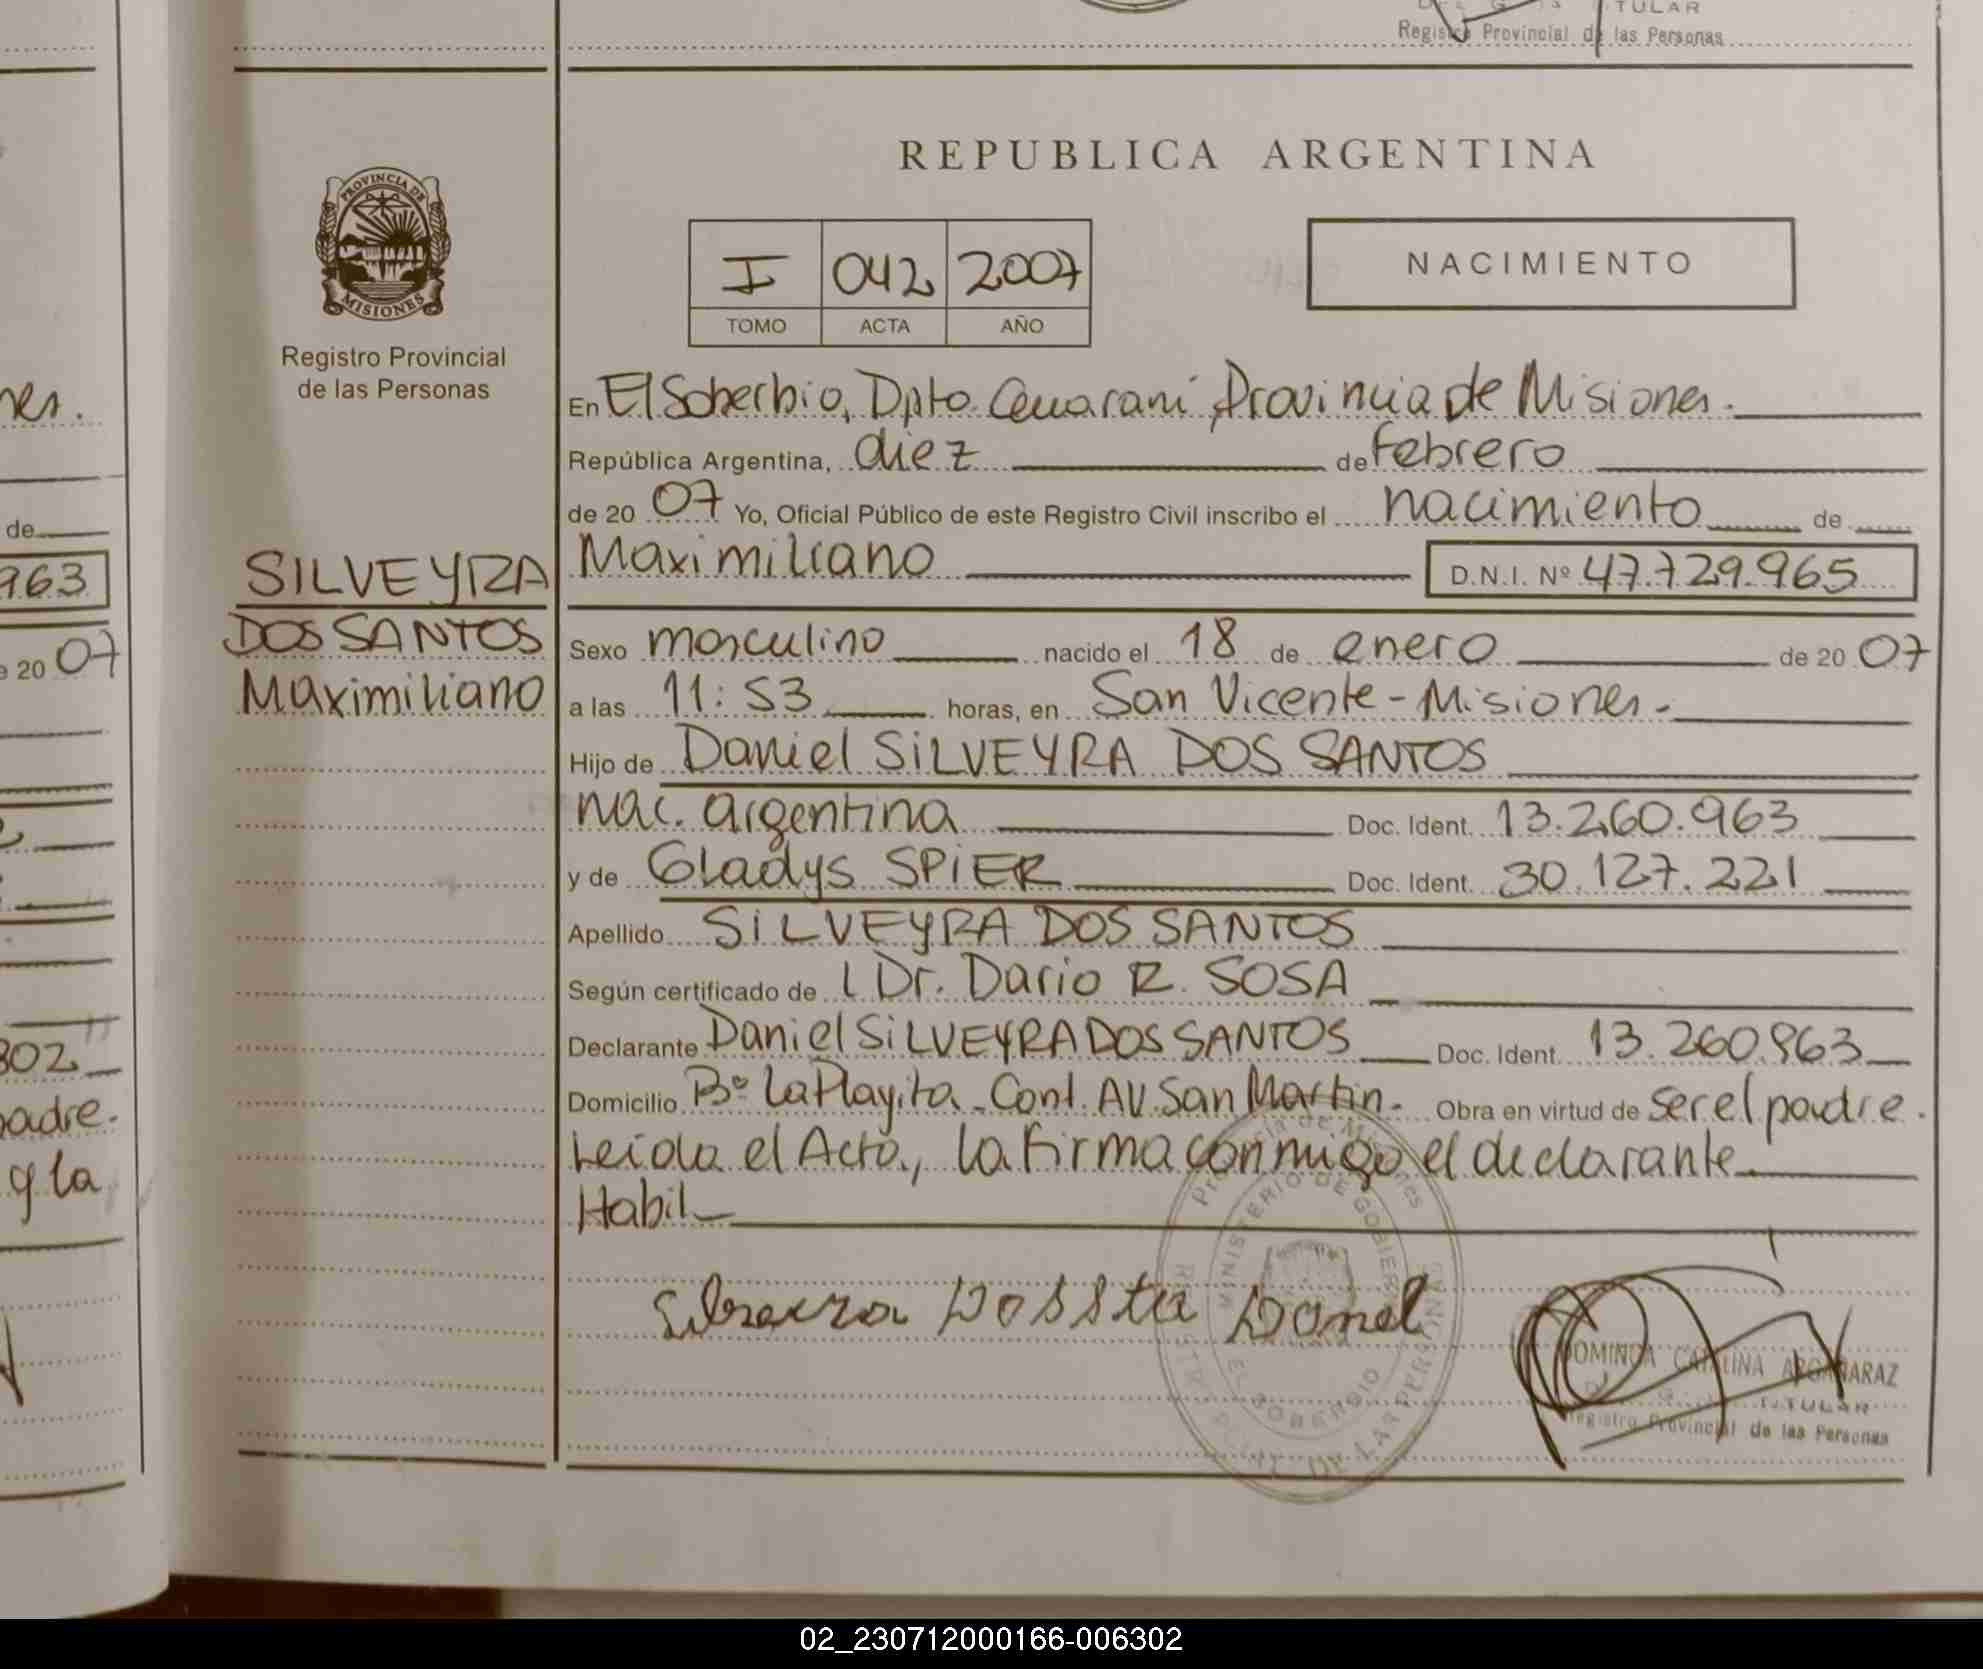 TULAR
Registro Provincial de las Personas
REPUBLICA ARGENTINA
PROVINCIA DE
MISIONES
Registro Provincial
de las Personas
I 042 2007
TOMO ACTA AÑO
NACIMIENTO
En El Soberbio, Dpto. Guaraní, Provincia de Misiones.
República Argentina, diez de Febrero
de 20 07 Yo, Oficial Público de este Registro Civil inscribo el nacimiento de
Maximiliano D.N.I. Nº 47.729.965
SILVEYRA
DOS SANTOS
Maximiliano
Sexo masculino nacido el 18 de enero de 20 07
a las 11:53 horas, en San Vicente - Misiones.
Hijo de Daniel SILVEYRA DOS SANTOS
nac. argentina Doc. Ident. 13.260.963
y de Gladys SPIER Doc. Ident. 30.127.221
Apellido SILVEYRA DOS SANTOS
Según certificado de l Dr. Dario R. SOSA
Declarante Daniel SILVEYRA DOS SANTOS Doc. Ident. 13.260.963
Domicilio Bº La Playita - Cont. AV. San Martin. Obra en virtud de ser el padre.
Leida el Acta, la Firma conmigo el declarante
Habil
Provincia de Misiones
MINISTERIO DE GOBIERNO
EL SOBERBIO
DE LAS PERSONAS
DOMINGA CATALINA ARGAÑARAZ
TITULAR
Registro Provincial de las Personas
nes.
de
963
20 07
802
padre.
y la
02_230712000166-006302